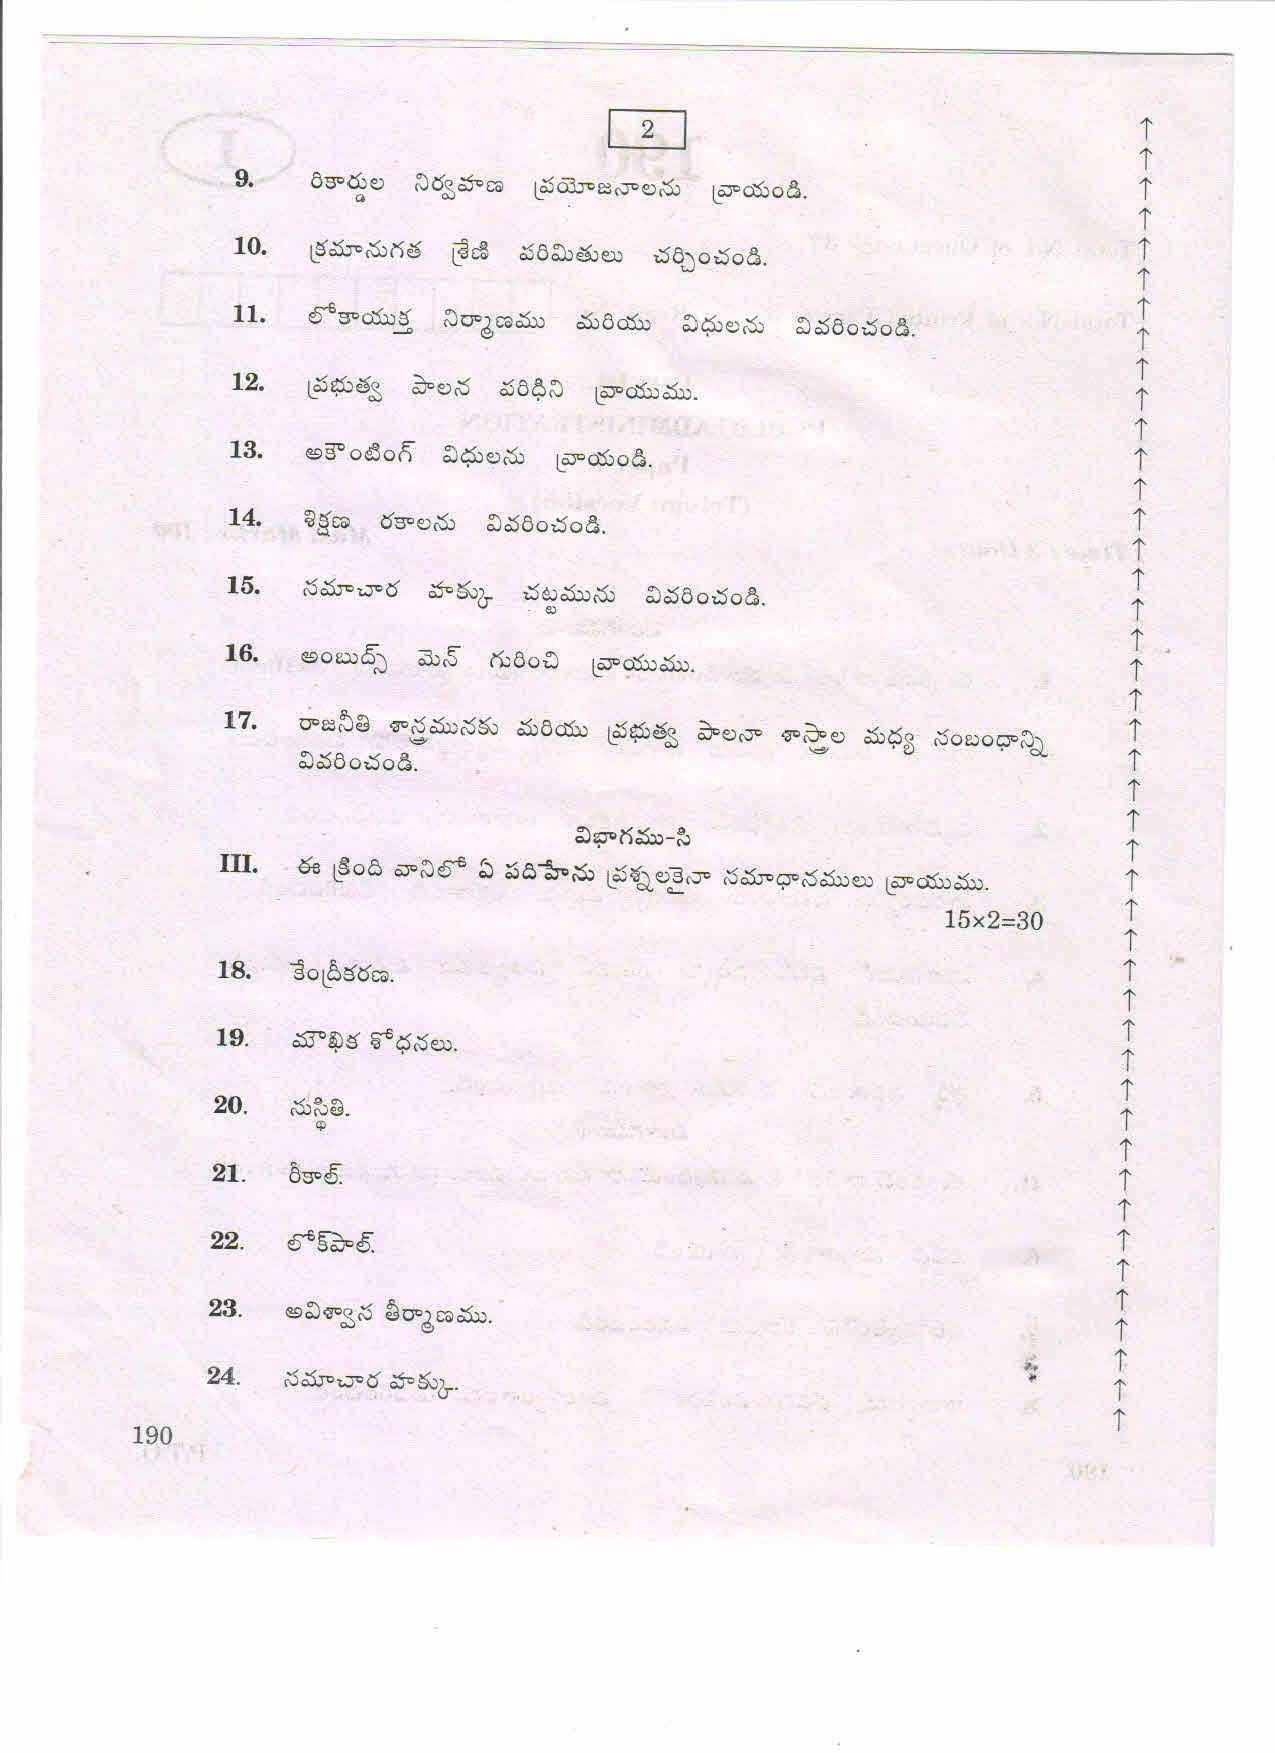 2
9. రికార్డుల నిర్వహణ ప్రయోజనాలను వ్రాయండి.
10. క్రమానుగత శ్రేణి పరిమితులు చర్చించండి.
11. లోకాయుక్త నిర్మాణము మరియు విధులను వివరించండి.
12. ప్రభుత్వ పాలన పరిధిని వ్రాయుము.
13. అకౌంటింగ్ విధులను వ్రాయండి.
14. శిక్షణ రకాలను వివరించండి.
15. సమాచార హక్కు చట్టమును వివరించండి.
16. అంబుద్స్ మెన్ గురించి వ్రాయుము.
17. రాజనీతి శాస్త్రమునకు మరియు ప్రభుత్వ పాలనా శాస్త్రాల మధ్య సంబంధాన్ని
వివరించండి.
విభాగము-సి
III. ఈ క్రింది వానిలో ఏ పదిహేను ప్రశ్నలకైనా సమాధానములు వ్రాయుము.
15×2=30
18. కేంద్రీకరణ.
19. మౌఖిక శోధనలు.
20. సుస్థితి.
21. రీకాల్.
22. లోక్‌పాల్.
23. అవిశ్వాస తీర్మాణము.
24. సమాచార హక్కు.
190